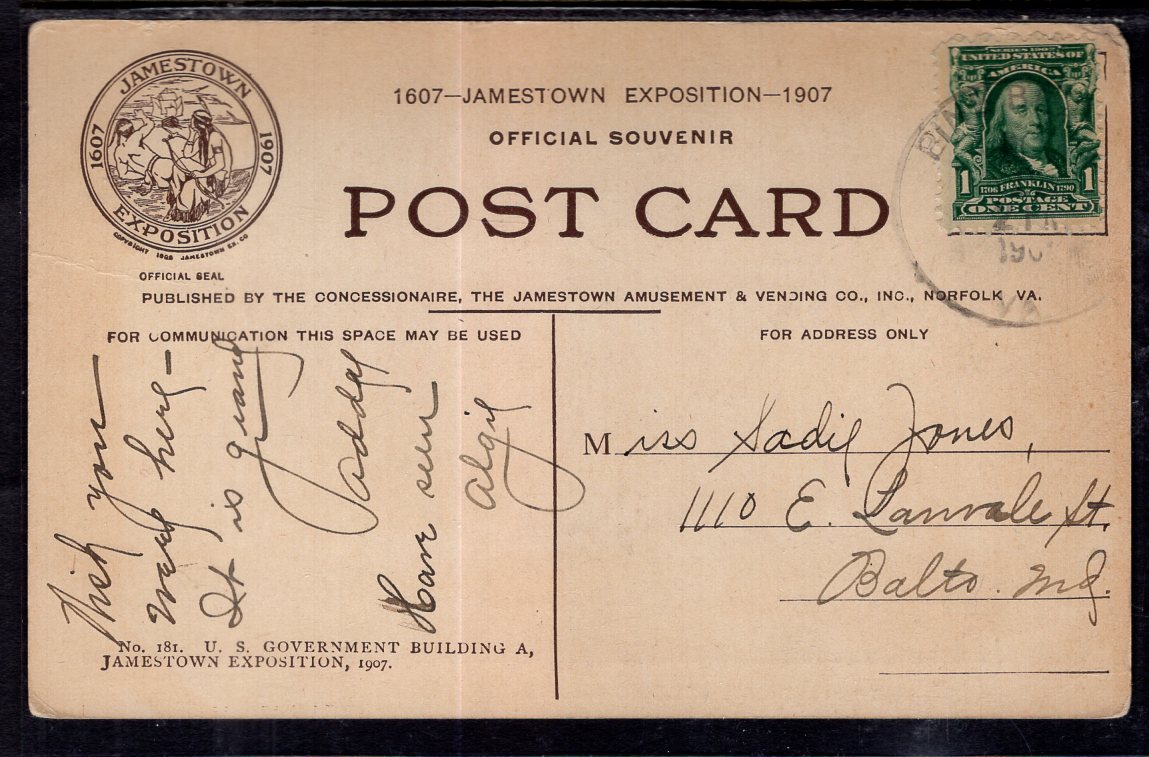 JAMESTOWN
1607
1907
EXPOSITION
COPYRIGHT 1906 JAMESTOWN EX. CO
OFFICIAL SEAL
1607—JAMESTOWN EXPOSITION—1907
OFFICIAL SOUVENIR
POST CARD
SERIES 1902
UNITED STATES OF
AMERICA
1 1
1706 FRANKLIN 1790
POSTAGE
ONE CENT
VA
PUBLISHED BY THE CONCESSIONAIRE, THE JAMESTOWN AMUSEMENT & VENDING CO., INC., NORFOLK VA.
FOR COMMUNICATION THIS SPACE MAY BE USED
FOR ADDRESS ONLY
Wish you
were here —
It is grand
Paddy
Have seen
Algie
Miss Sadie Jones,
1110 E. Lanvale St.
Balto. Md.
No. 181. U. S. GOVERNMENT BUILDING A,
JAMESTOWN EXPOSITION, 1907.